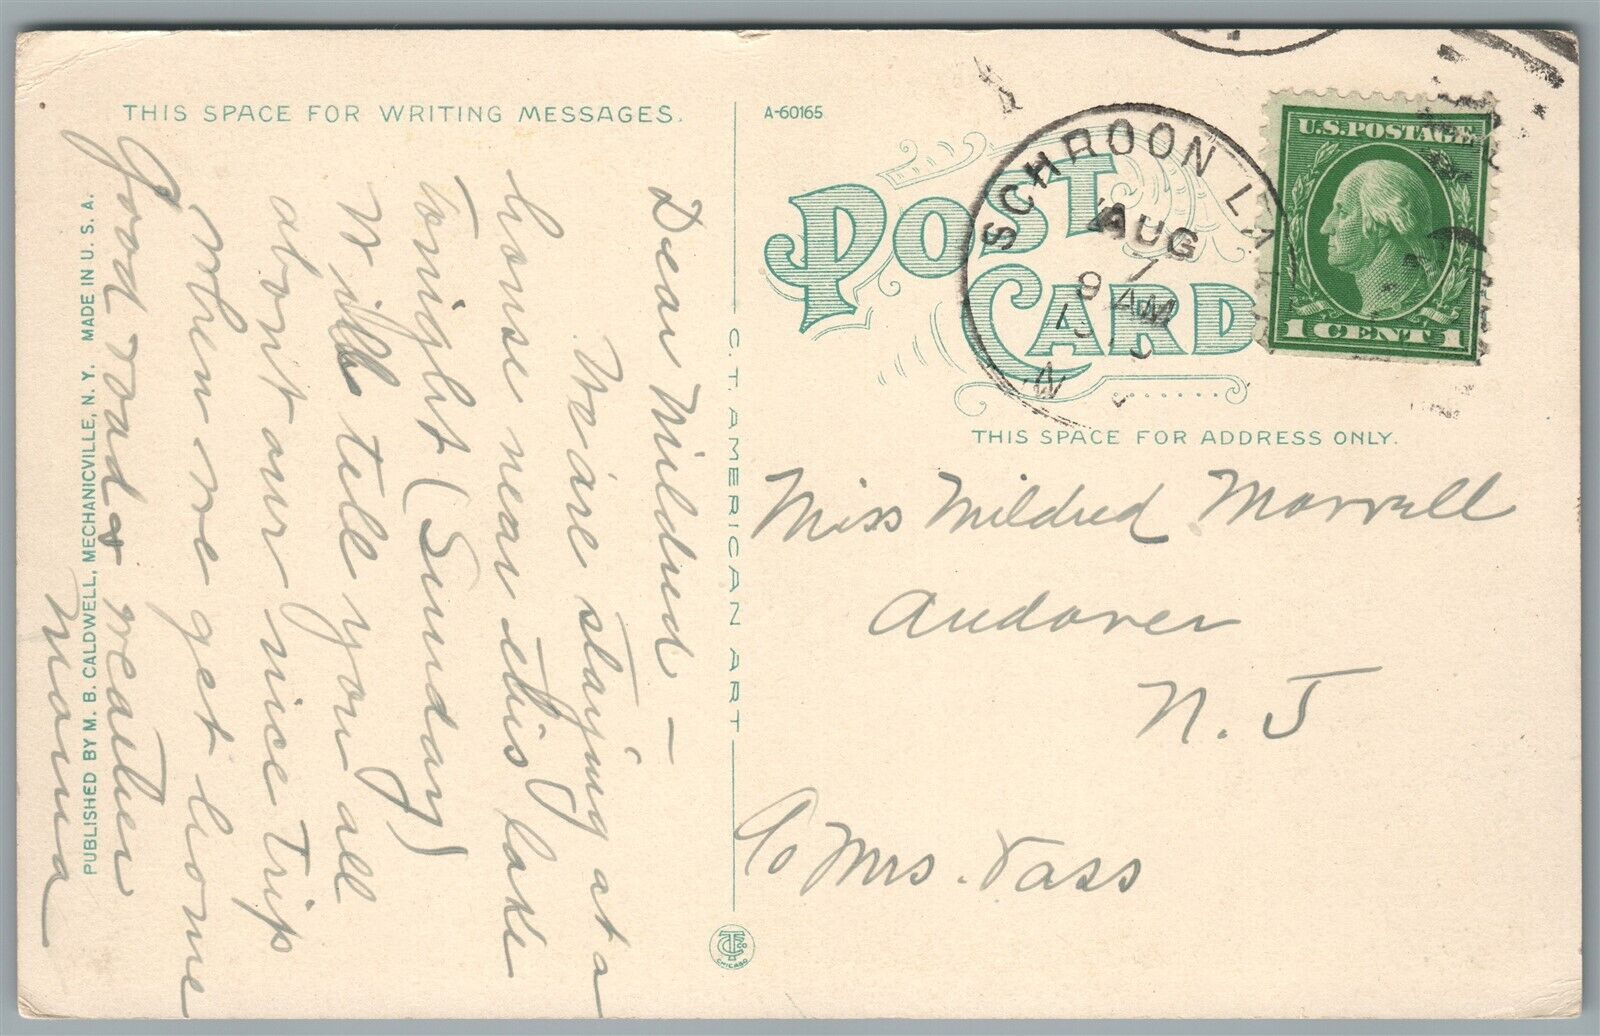 THIS SPACE FOR WRITING MESSAGES.
Dear Mildred —
We are staying at a
house near this lake
tonight (Sunday)
Will tell you all
about our nice trip
when we get home
Good roads & weather
Mama
PUBLISHED BY M. B. CALDWELL, MECHANICVILLE, N. Y. MADE IN U. S. A.
C. T. AMERICAN ART
CHICAGO
A-60165
POST CARD
SCHROON LAKE
AUG
7
9 AM
N.
U.S. POSTAGE
1 CENT 1
THIS SPACE FOR ADDRESS ONLY.
Miss Mildred Morrell
Andover
N. J
℅ Mrs. Vass